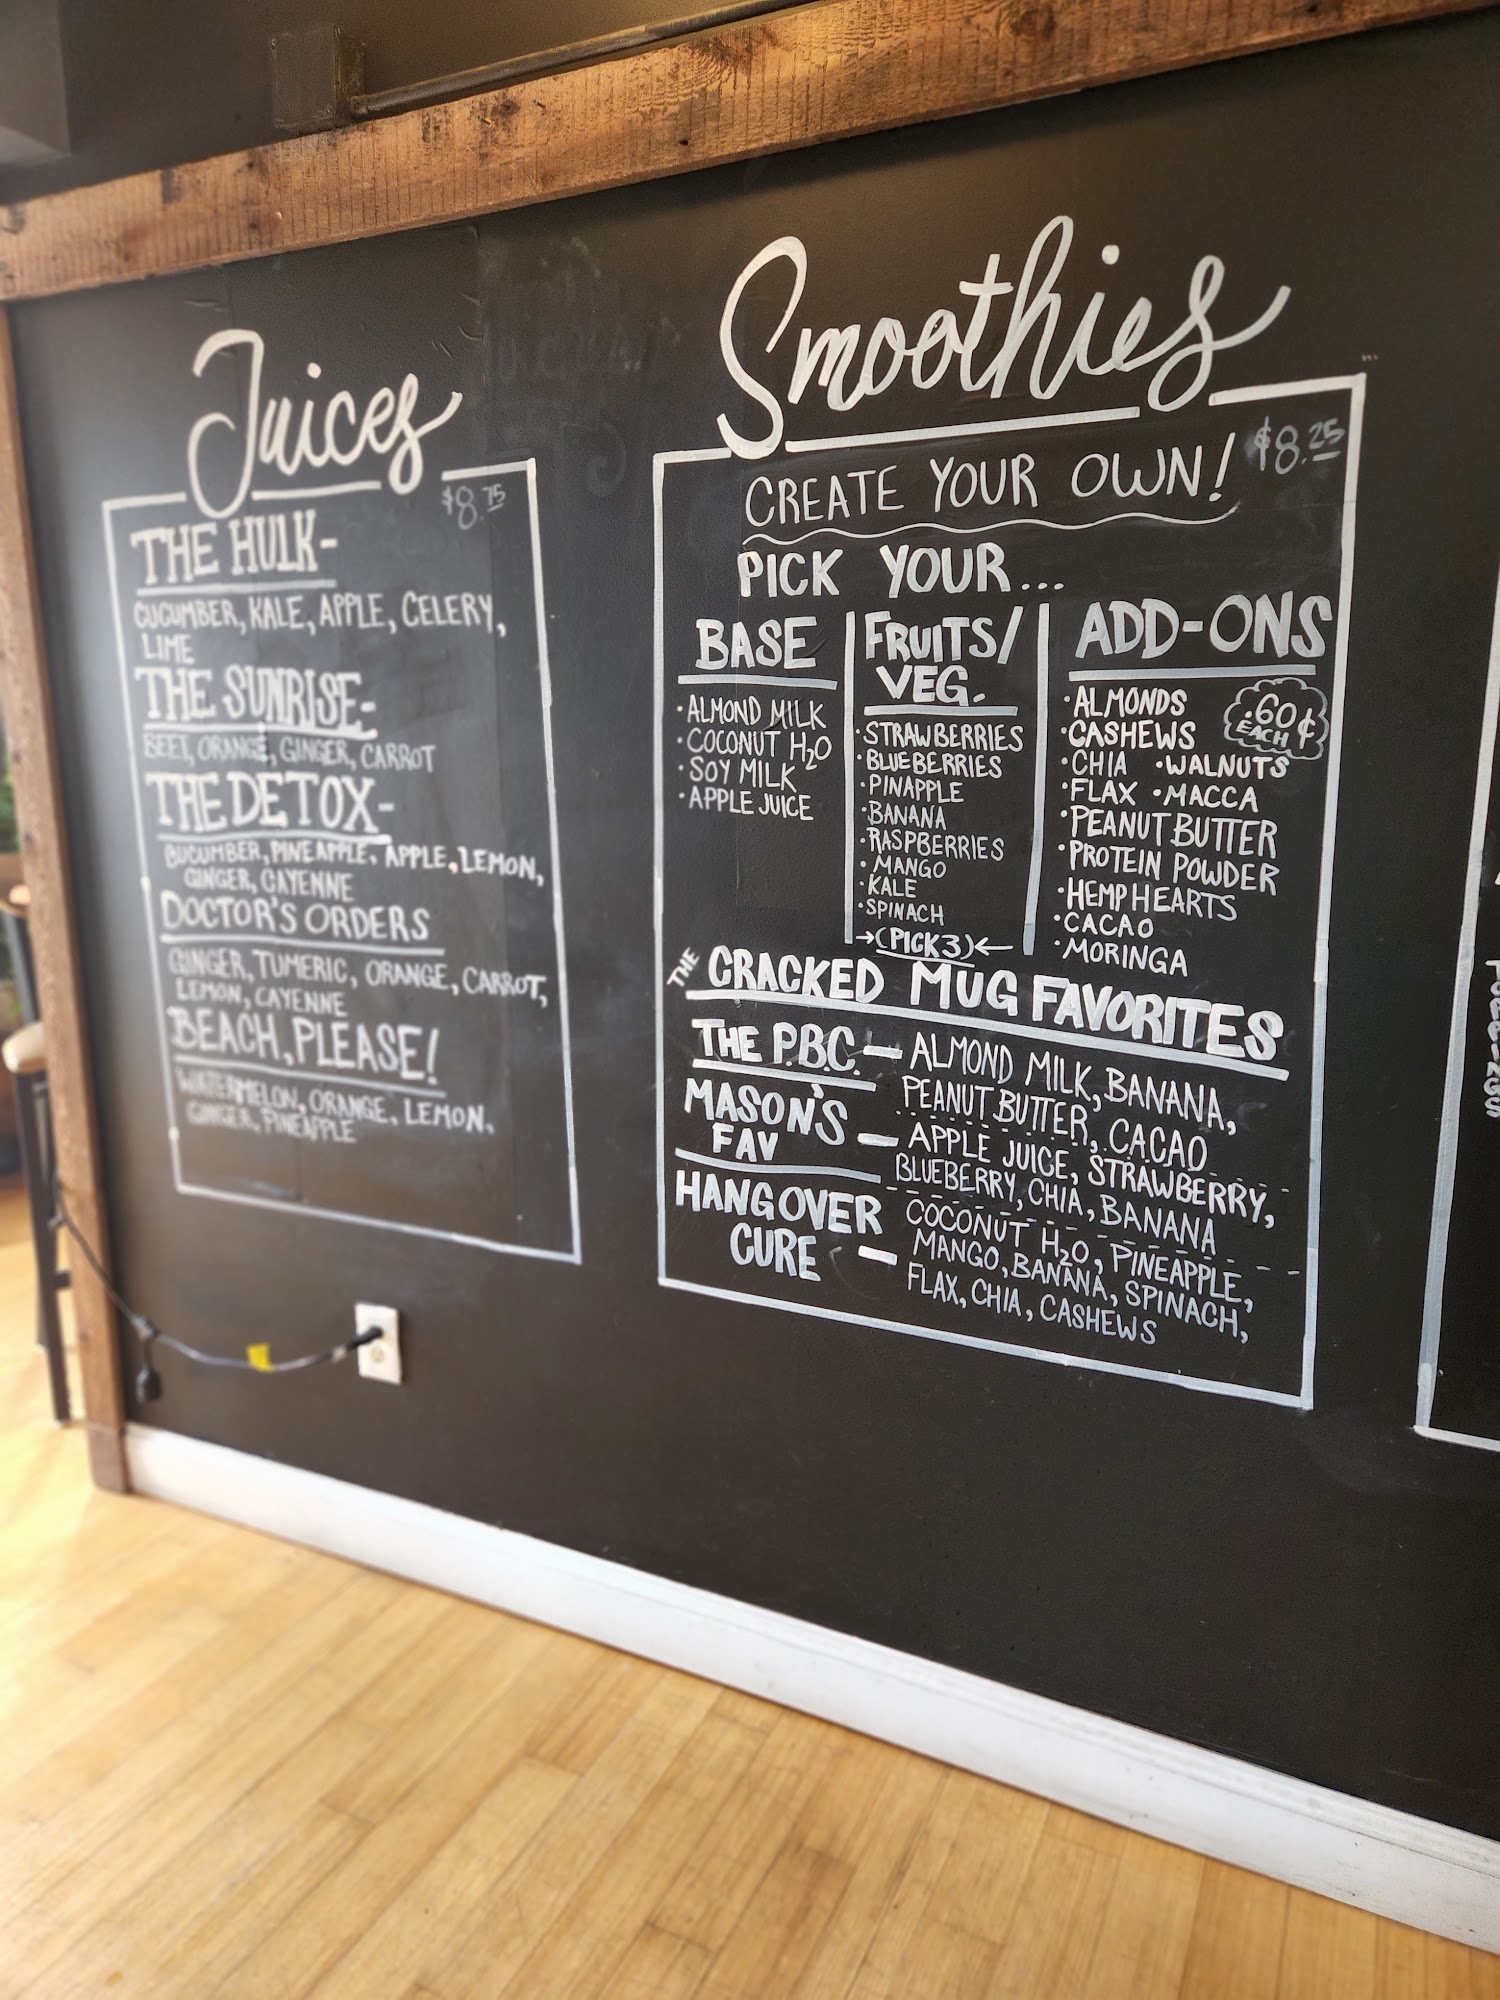 Juices
$8.75
THE HULK-
CUCUMBER, KALE, APPLE, CELERY,
LIME
THE SUNRISE-
BEET, ORANGE, GINGER, CARROT
THE DETOX-
CUCUMBER, PINEAPPLE, APPLE, LEMON,
GINGER, CAYENNE
DOCTOR'S ORDERS
GINGER, TUMERIC, ORANGE, CARROT,
LEMON, CAYENNE
BEACH, PLEASE!
WATERMELON, ORANGE, LEMON,
GINGER, PINEAPPLE
Smoothies
CREATE YOUR OWN! $8.25
PICK YOUR...
BASE
·ALMOND MILK
·COCONUT H₂O
·SOY MILK
·APPLE JUICE
FRUITS/
VEG.
·STRAWBERRIES
·BLUEBERRIES
·PINAPPLE
·BANANA
·RASPBERRIES
·MANGO
·KALE
·SPINACH
→(PICK 3)←
ADD-ONS
.60¢
EACH
·ALMONDS
·CASHEWS
·CHIA ·WALNUTS
·FLAX ·MACCA
·PEANUT BUTTER
·PROTEIN POWDER
·HEMP HEARTS
·CACAO
·MORINGA
THE CRACKED MUG FAVORITES
THE P.B.C. — ALMOND MILK, BANANA,
PEANUT BUTTER, CACAO
MASON'S
FAV — APPLE JUICE, STRAWBERRY,
BLUEBERRY, CHIA, BANANA
HANGOVER
CURE — COCONUT H₂O, PINEAPPLE,
MANGO, BANANA, SPINACH,
FLAX, CHIA, CASHEWS